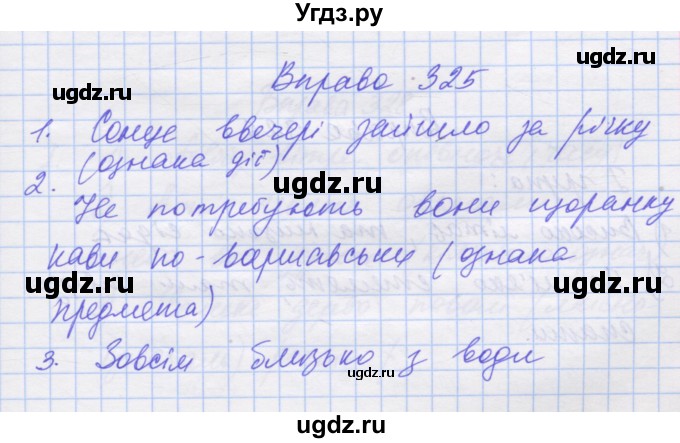 Угдз.ру
Вправа 325
1. Сонце ввечері зайшло за річку
(ознака дії)
2.
Не потребують вони щоранку
кави по-варшавськи (ознака
предмета)
3. Зовсім близько з води
ugdz.ru
ugdz.ru
ugdz.ru
ugdz.ru
ugdz.ru
ugdz.ru
ugdz.ru
ugdz.ru
ugdz.ru
ugdz.ru
ugdz.ru